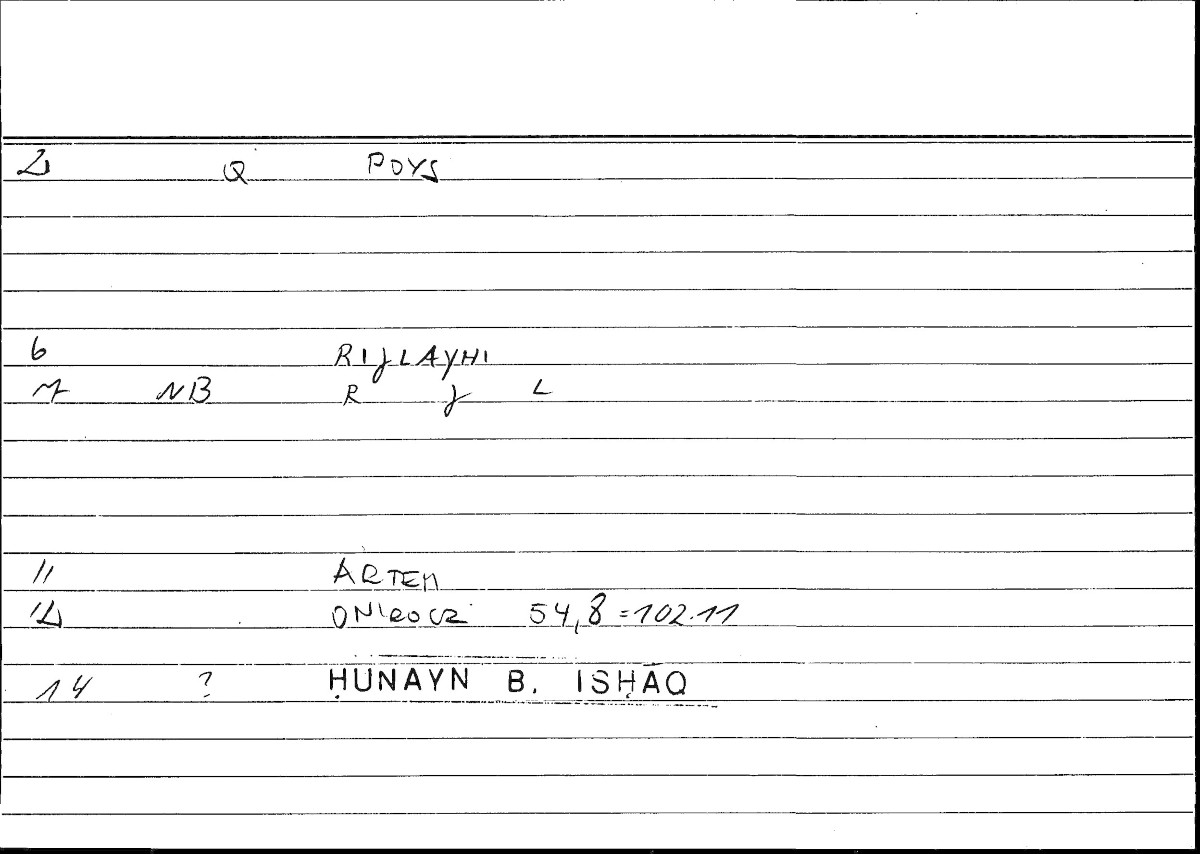 2 Q POYS
6 RIJLAYHI
7 NB R J L
11 ARTEM
12 ONIROCR 54,8=102.11
14 ? ḤUNAYN B. ISḤĀQ